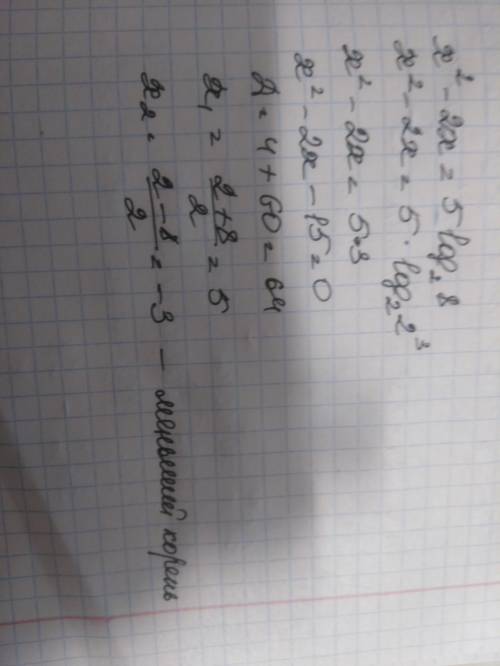 x² - 2x = 5 log₂ 8
x² - 2x = 5 · log₂ 2³
x² - 2x = 5·3
x² - 2x - 15 = 0
D = 4 + 60 = 64
x₁ = (2+8)/2 = 5
x₂ = (2-8)/2 = -3 — меньший корень